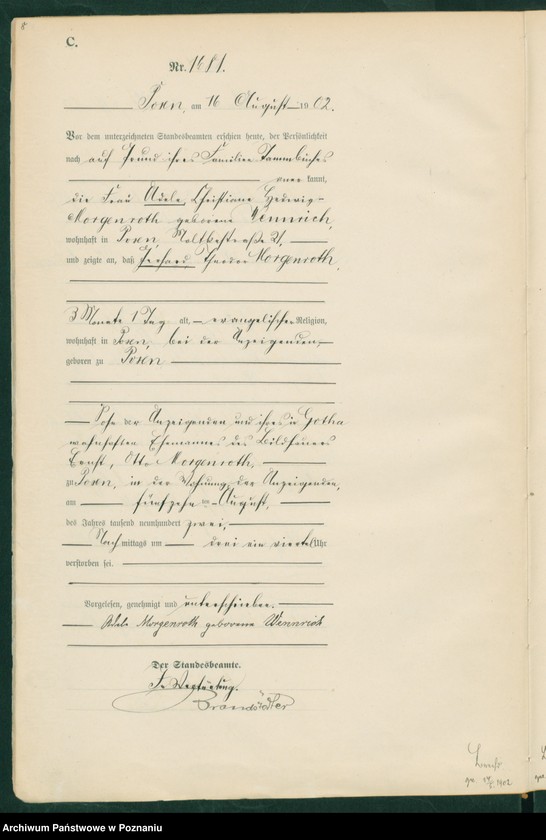 C.
Nr. 1681.
Posen, am 16 August 1902.
Vor dem unterzeichneten Standesbeamten erschien heute, der Persönlichkeit
nach auf Grund ihres Familien Stammbuches
aner kannt,
die Frau Adele Christiane Hedwig
Morgenroth geborene Wennrich,
wohnhaft in Posen, Moltkestraße 21,
und zeigte an, daß Gerhard Theodor Morgenroth,
3 Monate 1 Tag alt, evangelischer Religion,
wohnhaft in Posen, bei der Anzeigenden,
geboren zu Posen
Sohn der Anzeigenden und ihres in Gotha
wohnhaften Ehemannes des Bildhauers
Ernst, Otto Morgenroth,
zu Posen, in der Wohnung der Anzeigenden,
am fünfzehn ten August,
des Jahres tausend neunhundert zwei,
Nach mittags um drei ein viertel Uhr
verstorben sei.
Vorgelesen, genehmigt und unterschrieben.
Adele Morgenroth geborene Wennrich
Der Standesbeamte.
In Vertretung.
Brandstädter
Archiwum Państwowe w Poznaniu